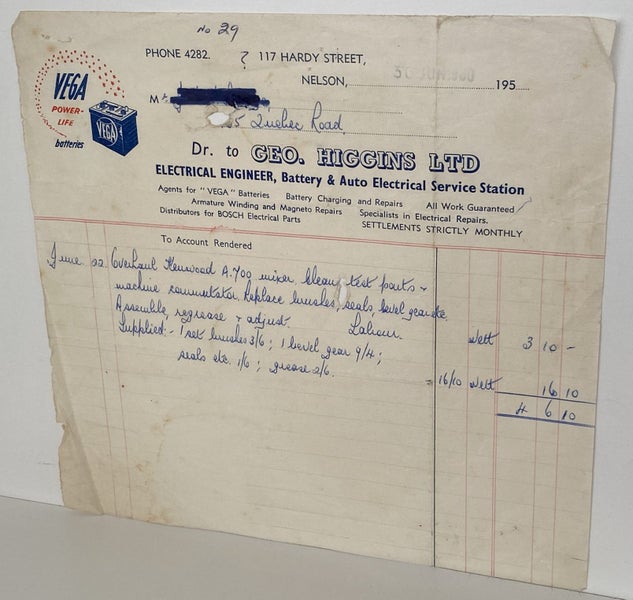 No 29
PHONE 4282. ? 117 HARDY STREET,
NELSON, 195
VEGA
POWER-
LIFE
batteries
VEGA
M
5 Quebec Road
Dr. to GEO. HIGGINS LTD
ELECTRICAL ENGINEER, Battery & Auto Electrical Service Station
Agents for "VEGA" Batteries Battery Charging and Repairs All Work Guaranteed
Armature Winding and Magneto Repairs Specialists in Electrical Repairs.
Distributors for BOSCH Electrical Parts SETTLEMENTS STRICTLY MONTHLY
To Account Rendered
June 22 Overhaul Kenwood A.700 mixer, clean, test parts +
machine commutator. Replace brushes, seals, bevel gear etc.
Assemble, regrease + adjust. Labour. Nett 3 10 -
Supplied:- 1 set brushes 3/6; 1 bevel gear 9/4;
seals etc. 1/6; grease 2/6. 16/10 Nett 16 10
4 6 10